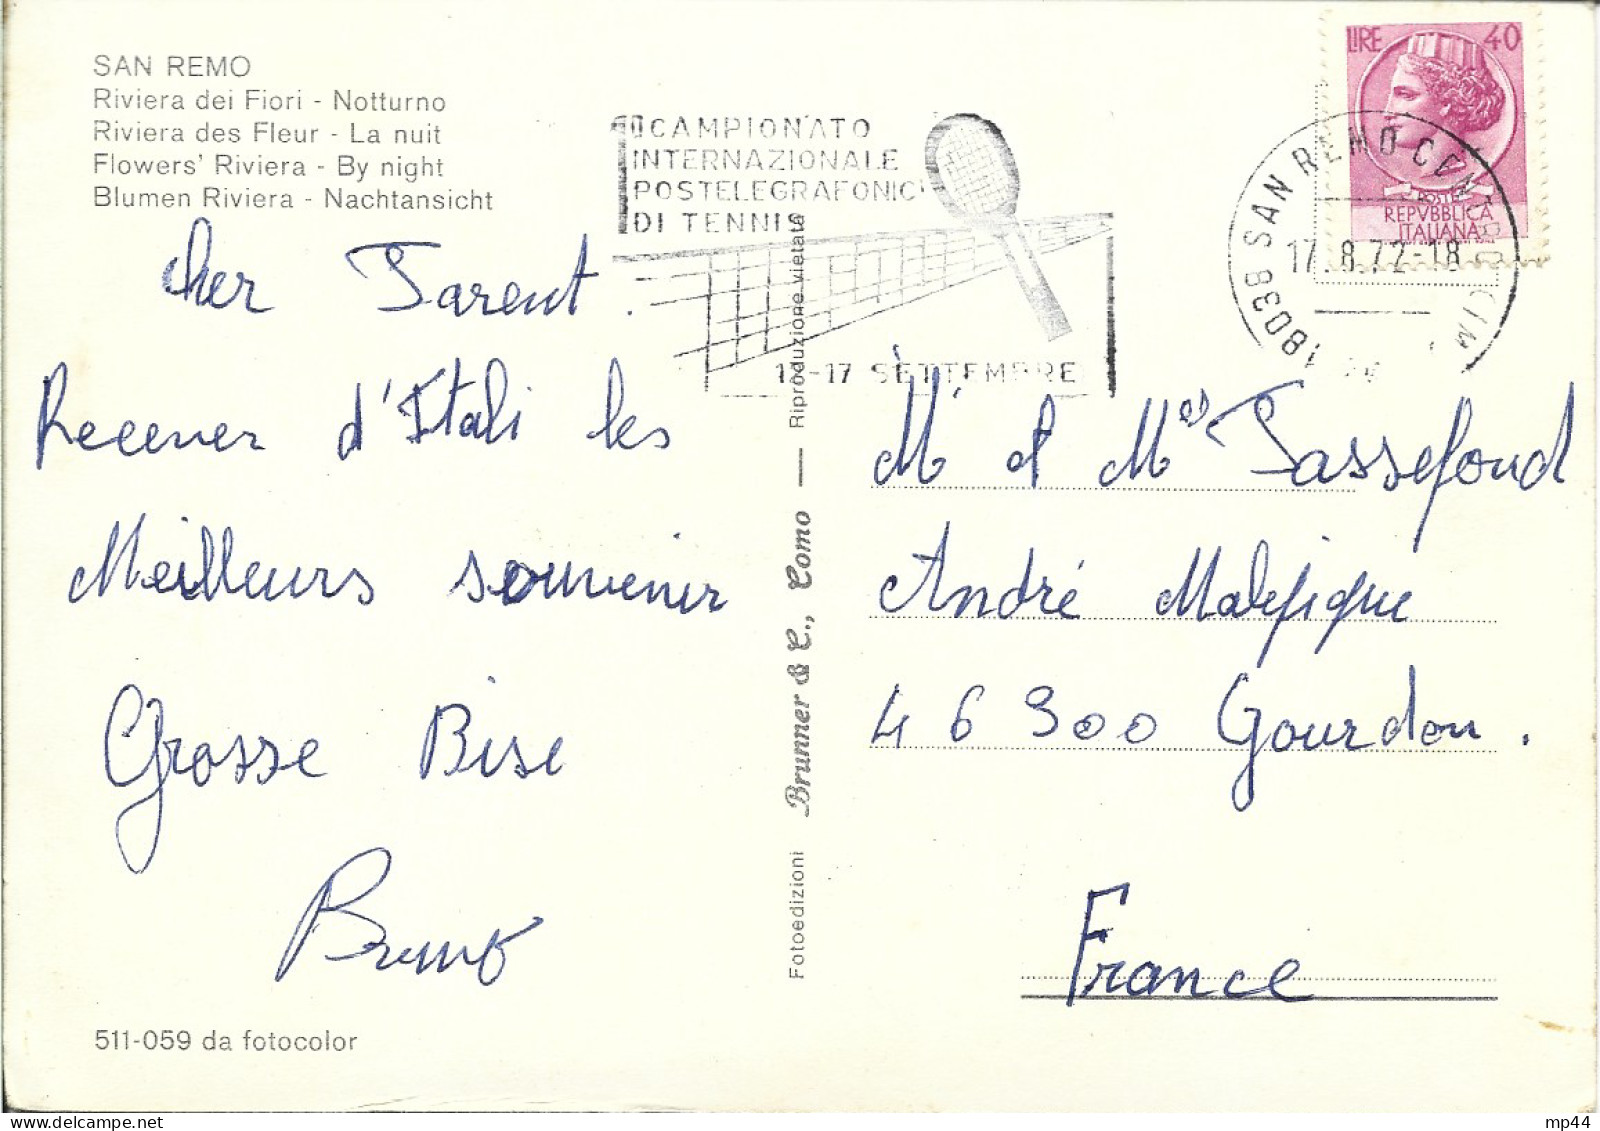 SAN REMO
Riviera dei Fiori - Notturno
Riviera des Fleur - La nuit
Flowers' Riviera - By night
Blumen Riviera - Nachtansicht
CAMPIONATO
INTERNAZIONALE
POSTELEGRAFONICI
DI TENNIS
-17 SETTEMBRE
LIRE 40
POSTE
REPVBBLICA
ITALIANA
18038 SAN REMO
17.8.72-18
Cher Parent.
Recever d'Itali les
Meilleurs souvenir
Grosse Bise
Bruno
511-059 da fotocolor
Fotoedizioni Brunner & C., Como — Riproduzione vietata
Mr et Mes Passefond
André Malefique
46300 Gourdon.
France
mp44